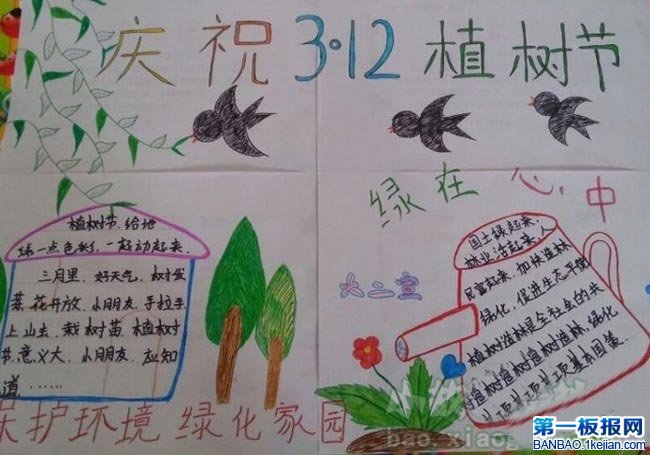 庆祝3·12植树节
绿在心中
植树节,给地
球一点色彩,一起动起来,
三月里,好天气,树发
菜,花开放,小朋友,手拉手
上山去,栽树苗,植树
节,意义大,小朋友,应知
道……
国土绿起来,
林业活起来,人
民富起来,加快造林
绿化,促进生态平衡
植树造林是全社会的共
植树植树植树造林,绿化
基本国策.
大二宣
保护环境 绿化家园
bao.xiao
第一板报网
BANBAO.1kejian.com